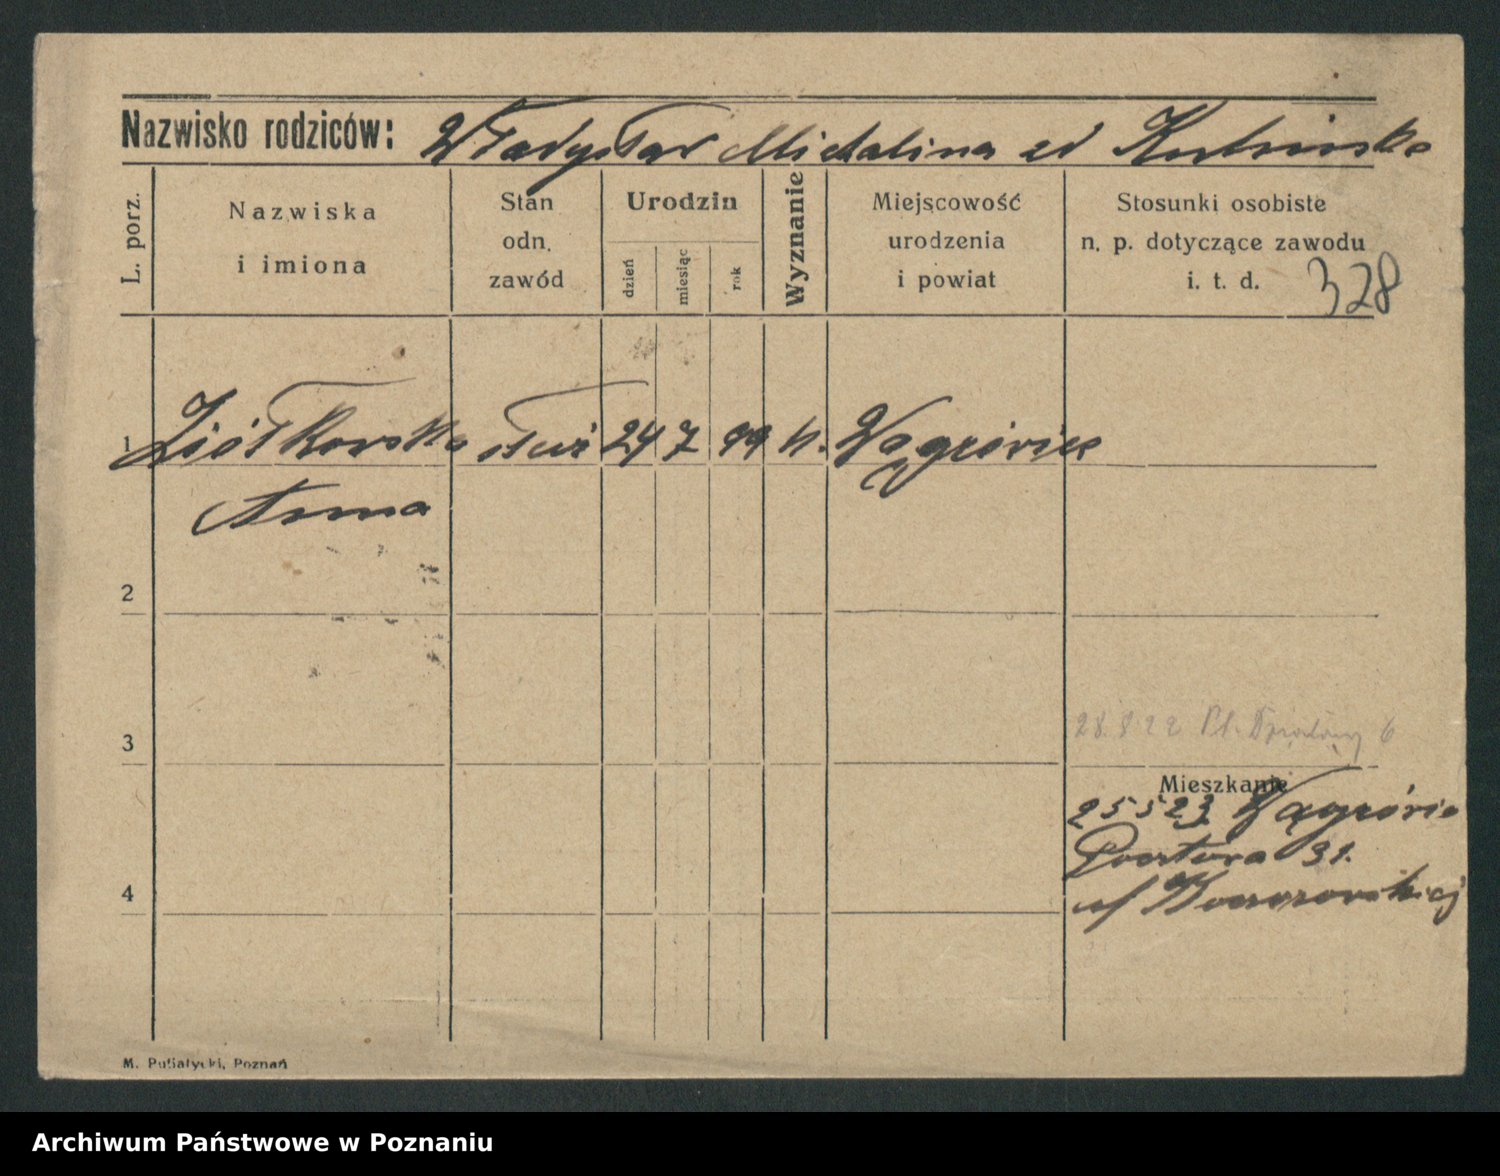 Nazwisko rodziców: Władysław Michalina zd Kubińska
L. porz.
Nazwiska
i imiona
Stan
odn.
zawód
Urodzin
dzień
miesiąc
rok
Wyznanie
Miejscowość
urodzenia
i powiat
Stosunki osobiste
n. p. dotyczące zawodu
i. t. d.
328
1 Ziółkowska służ 24 7 99 k. Wągrówiec
Anna
2
28.8.22 Pl. 6
3
Mieszkanie
25 5 23 Wągrówie
31.
4
M. Pusiatycki, Poznań
Archiwum Państwowe w Poznaniu